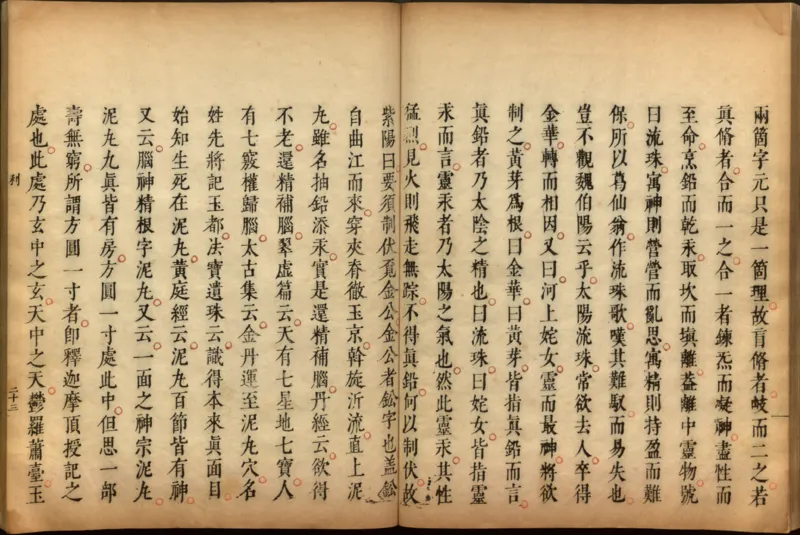 兩箇字元只是一箇理故盲脩者岐而二之若
眞脩者合而一之合一者鍊炁而凝神盡性而
至命烹鉛而乾汞取坎而塡離葢離中靈物號
曰流珠寓神則營營而亂思寓精則持盈而難
保所以葛仙翁作流珠歌嘆其難馭而易失也
豈不觀魏伯陽云乎太陽流珠常欲去人卒得
金華轉而相因又曰河上姹女靈而最神將欲
制之黃芽爲根曰金華曰黃芽皆指眞鉛而言
眞鉛者乃太陰之精也曰流珠曰姹女皆指靈
汞而言靈汞者乃太陽之氣也然此靈汞其性
猛烈見火則飛走無踪不得眞鉛何以制伏故
紫陽曰要須制伏覔金公金公者鈆字也葢鈆
自曲江而來穿夾脊徹玉京斡旋沂流直上泥
丸雖名抽鉛添汞實是還精補腦丹經云欲得
不老還精補腦翠虛篇云天有七星地七寶人
有七竅權歸腦太古集云金丹運至泥丸穴名
姓先將記玉都法寶遺珠云識得本來眞面目
始知生死在泥丸黃庭經云泥丸百節皆有神
又云腦神精根字泥丸又云一面之神宗泥丸
泥丸九眞皆有房方圓一寸處此中但思一部
壽無窮所謂方圓一寸者卽釋迦摩頂授記之
處也此處乃玄中之玄天中之天鬱羅蕭臺玉
利
二十三